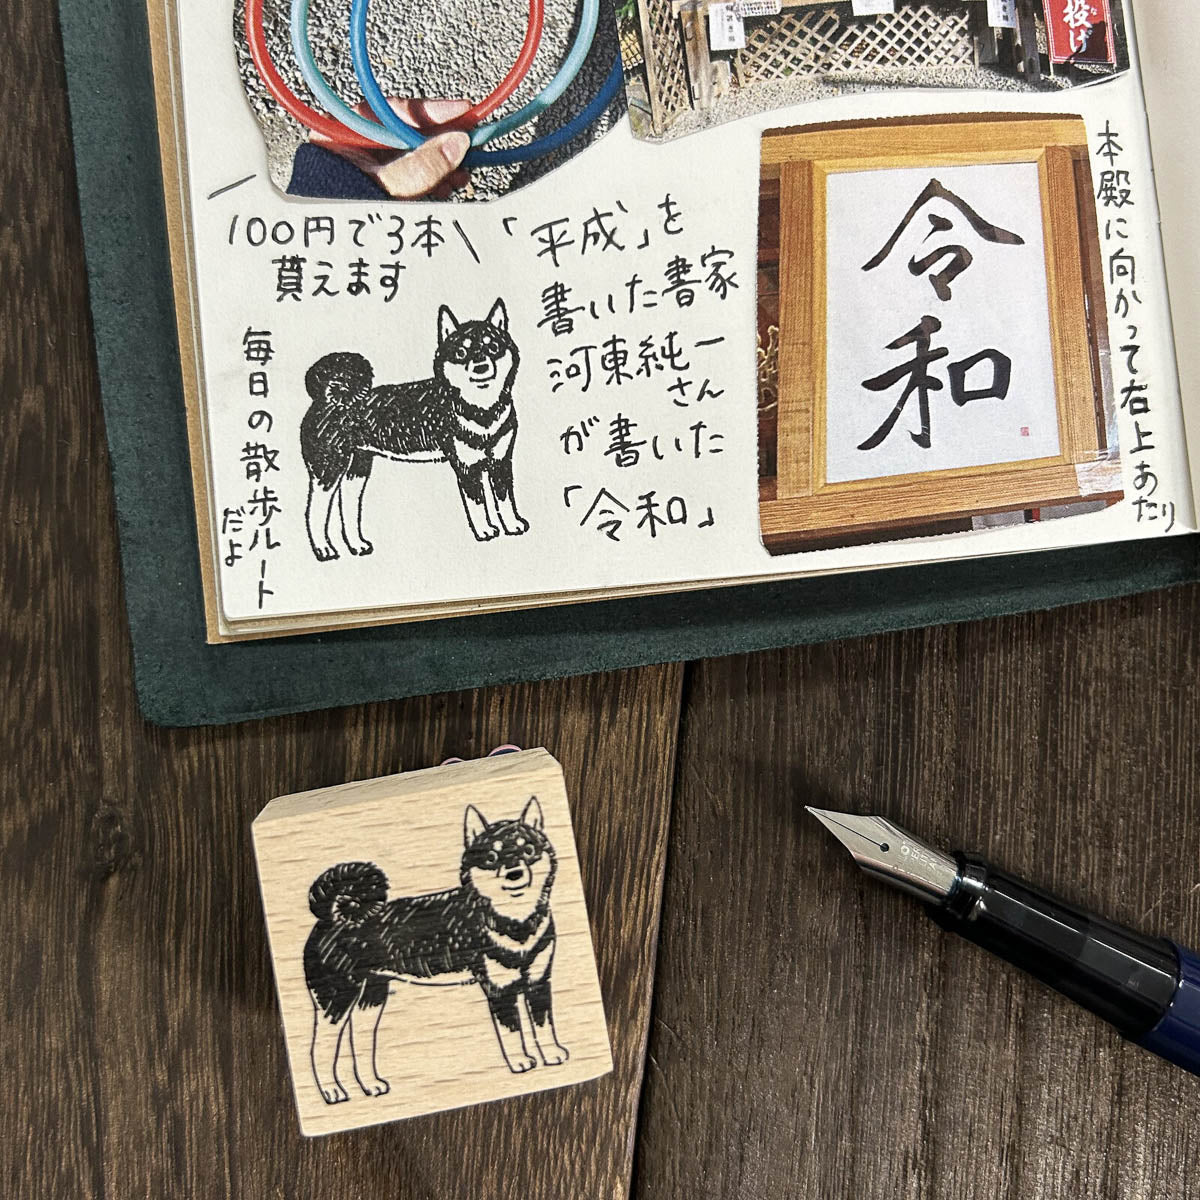 投げ
100円で3本
貰えます
「平成」を
書いた書家
河東純一
さん
が書いた
「令和」
毎日の散歩ルート
だよ
令和
本殿に向かって右上あたり